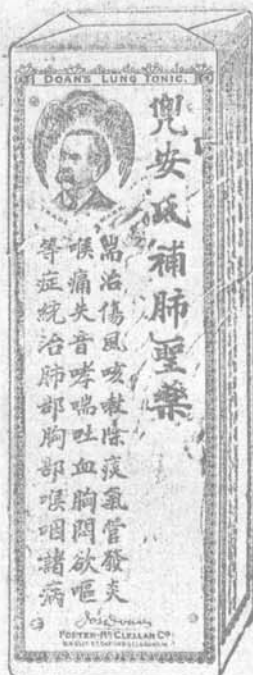 DOAN'S LUNG TONIC.
兜安氏補肺聖藥
耑治傷風咳嗽除痰氣管發炎
喉痛失音哮喘吐血胸悶欲嘔
等症統治肺部胸部喉咽諸病
Jas Doan
FOSTER-McCLELLAN Co.